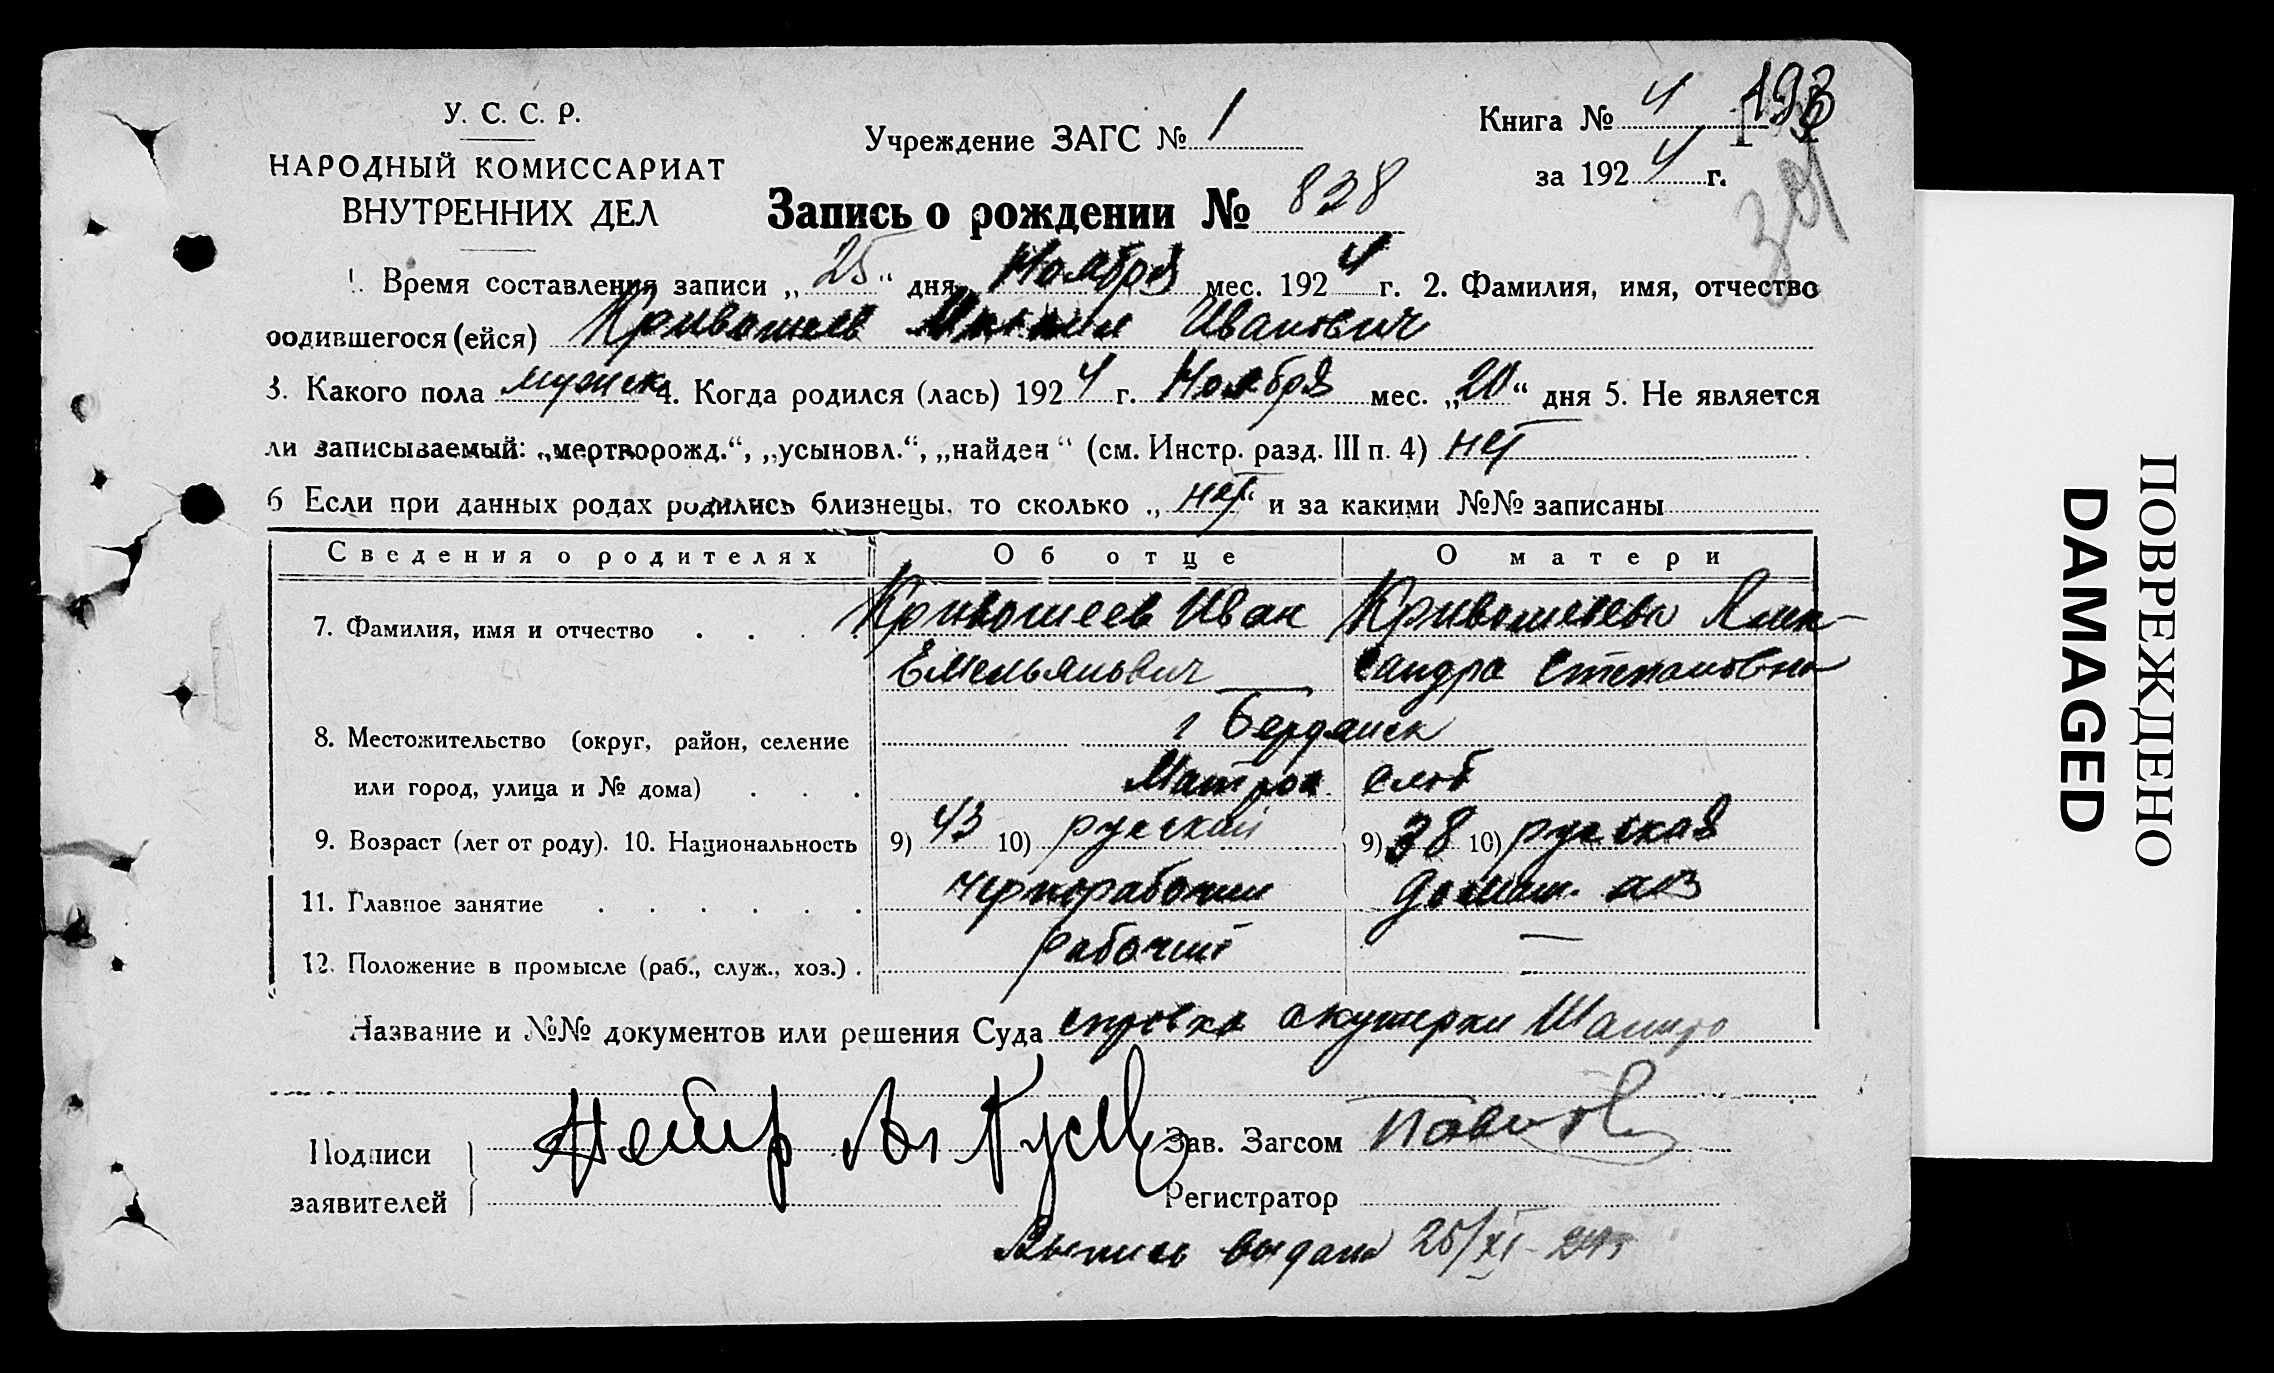 У. С. С. Р.
НАРОДНЫЙ КОМИССАРИАТ
ВНУТРЕННИХ ДЕЛ
Учреждение ЗАГС № 1
Книга № 4
за 1924 г.
Запись о рождении № 838
1. Время составления записи „25“ дня Ноября мес. 1924 г. 2. Фамилия, имя, отчество
родившегося (ейся) Кривошеев Иванович
3. Какого пола мужск 4. Когда родился (лась) 1924 г. Ноября мес. „20“ дня 5. Не является
ли записываемый: „мертворожд.“, „усыновл.“, „найден“ (см. Инстр. разд. III п. 4) нет
6 Если при данных родах родились близнецы, то сколько „нет“ и за какими №№ записаны
Сведения о родителях Об отце О матери
7. Фамилия, имя и отчество Кривошеев Иван Кривошеева Алек-
Емельянович сандра Степановна
8. Местожительство (округ, район, селение г Бердянск
или город, улица и № дома) слоб
9. Возраст (лет от роду). 10. Национальность 9) 43 10) русский 9) 38 10) русская
11. Главное занятие чернорабочий домаш. хоз
12. Положение в промысле (раб., служ., хоз.) рабочий —
Название и №№ документов или решения Суда справка акушерки Шапиро
Подписи
заявителей
Зав. Загсом
Регистратор
Выпись выдана 25/XI-24г
ПОВРЕЖДЕНО
DAMAGED